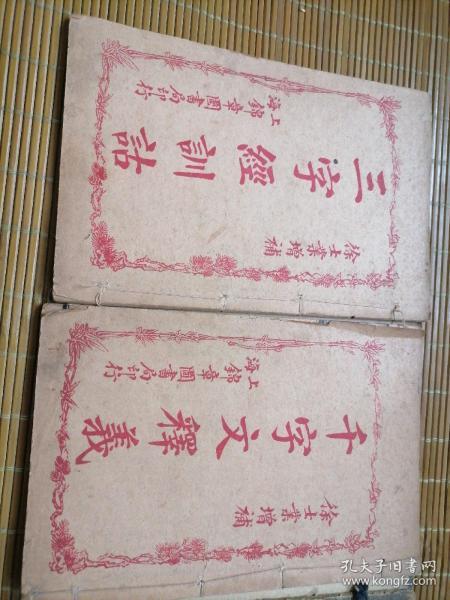 徐士業增補
三字經訓詁
上海錦章圖書局印行
徐士業增補
千字文釋義
上海錦章圖書局印行
孔夫子旧书网
www.kongfz.com